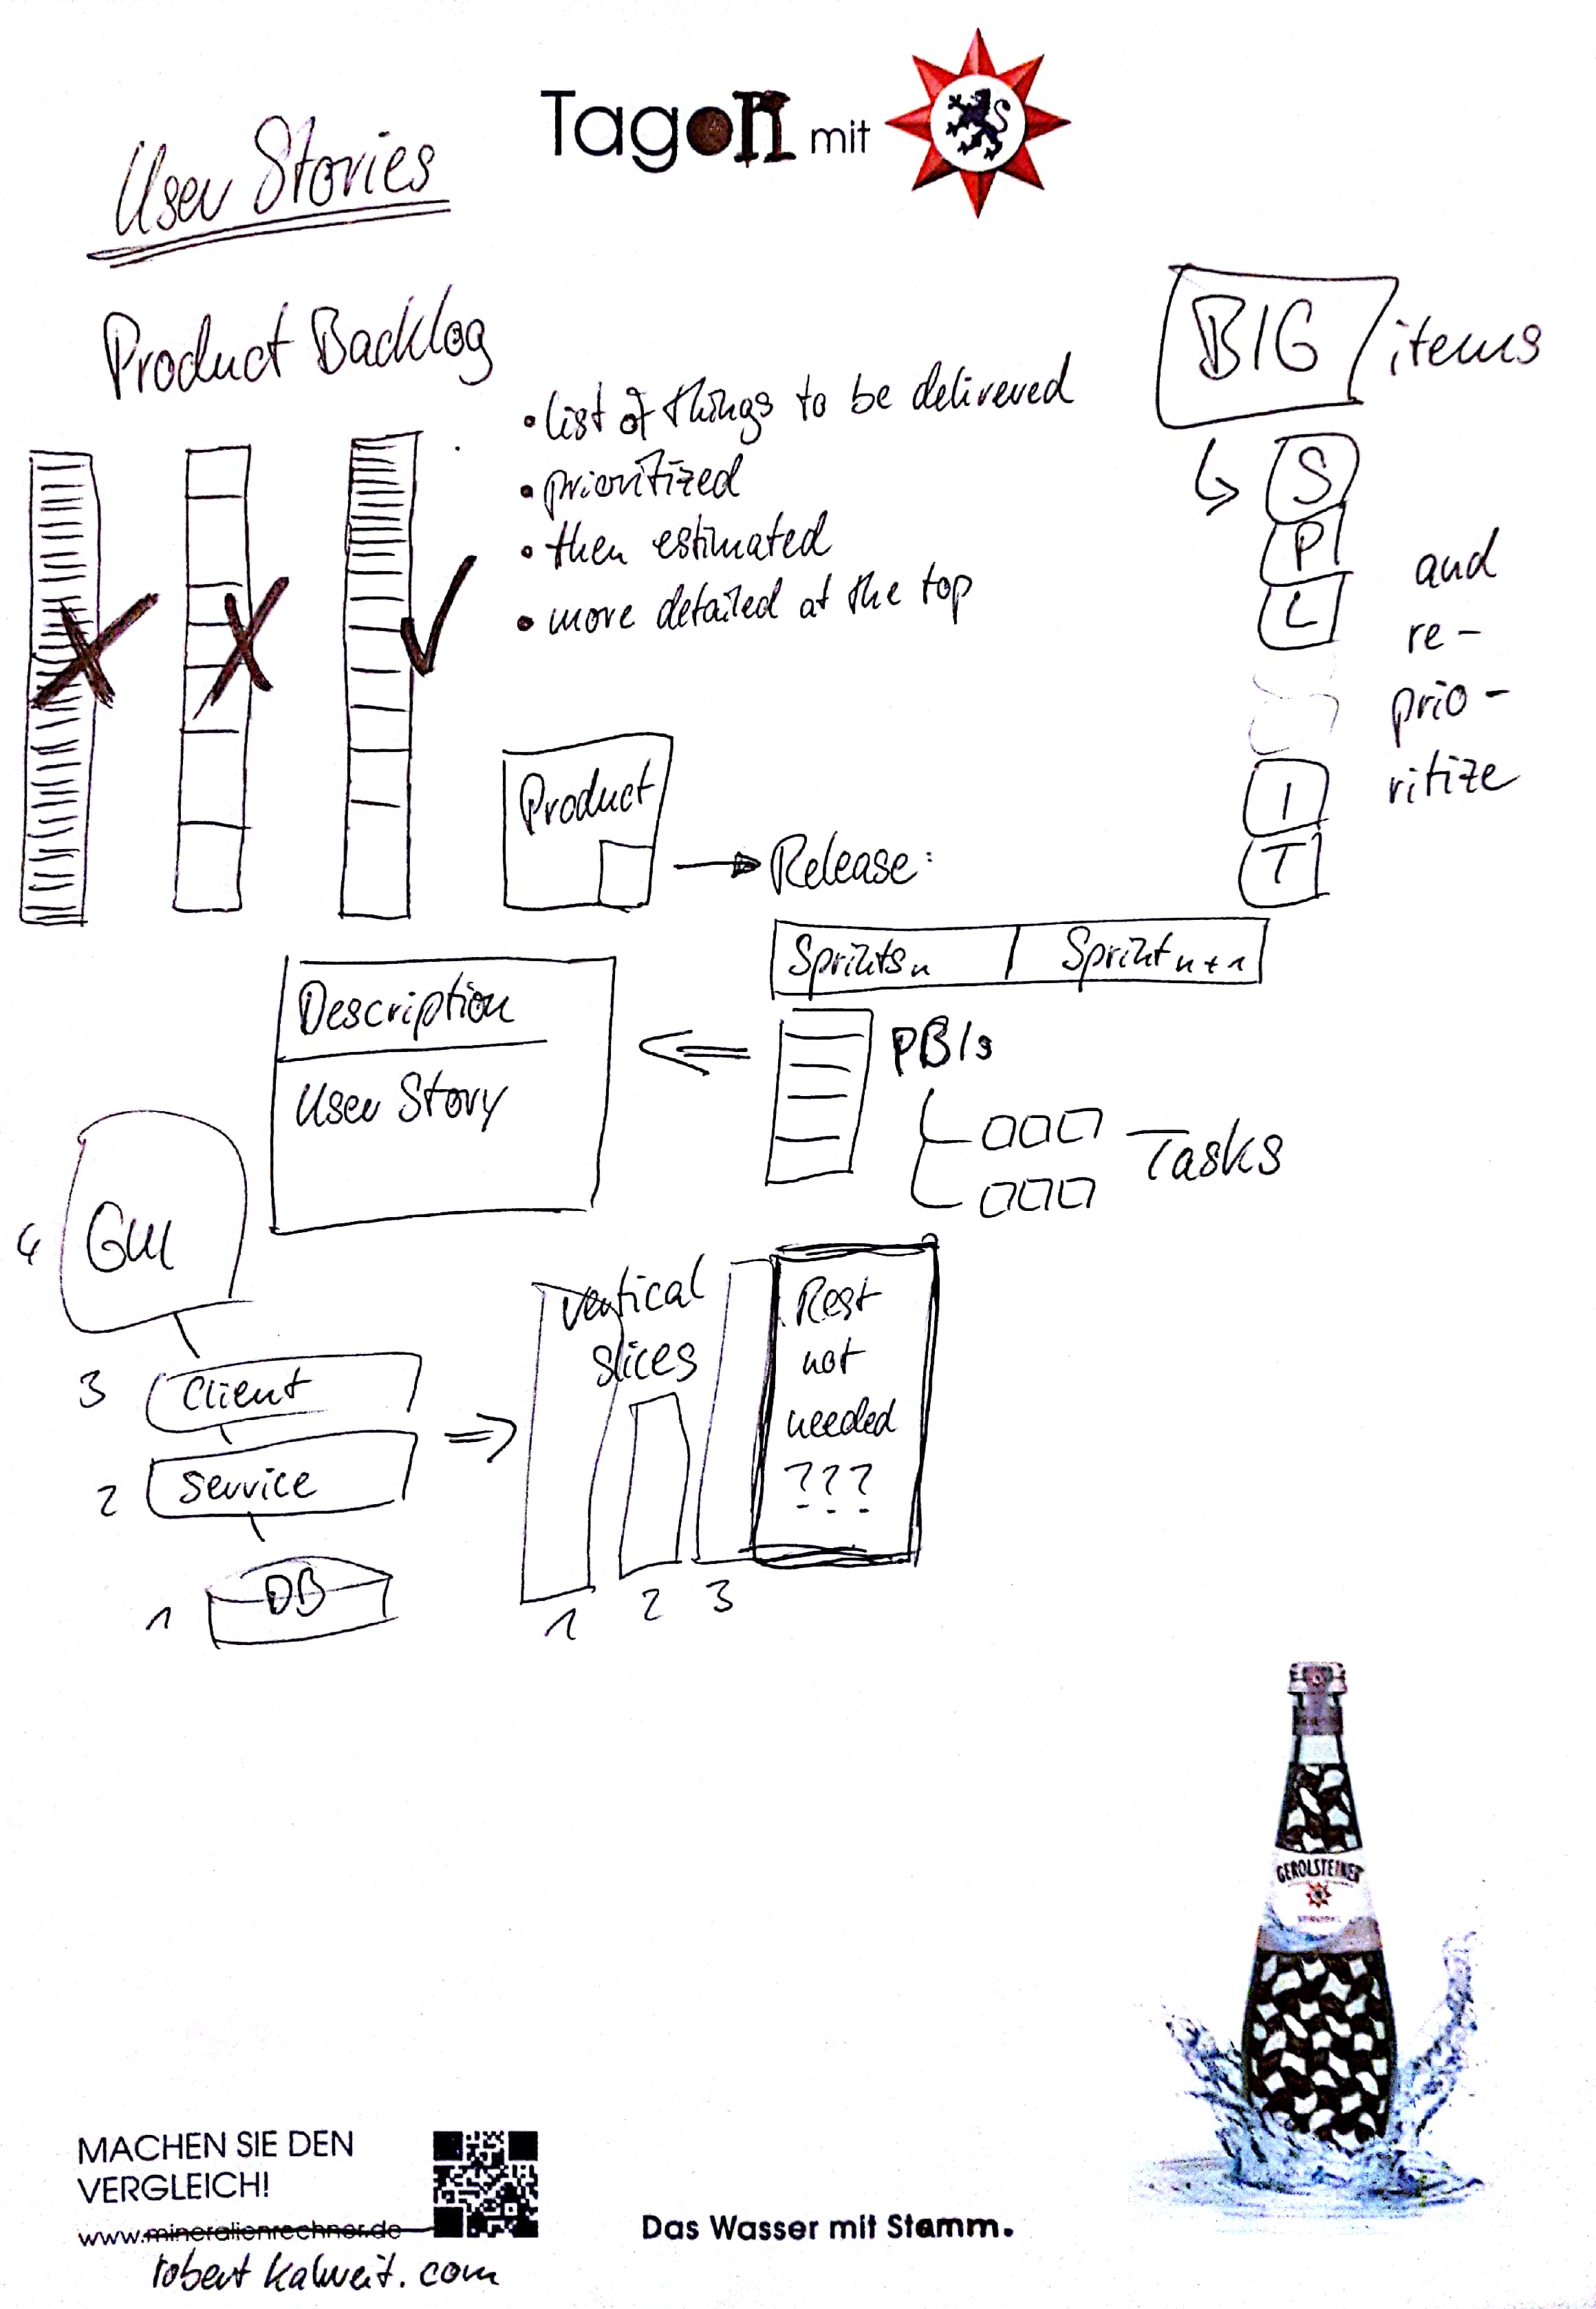 Tagon mit
User Stories
Product Backlog
• list of things to be delivered
• prioritized
• then estimated
• more detailed at the top
BIG items
S
P
L
I
T
and
re-
prio-
ritize
Product
Release:
Sprints n
Sprint n+1
Description
User Story
PBIs
Tasks
4 GUI
3 Client
2 Service
1 DB
vertical
slices
1 2 3
Rest
not
needed
???
GEROLSTEINER
MACHEN SIE DEN
VERGLEICH!
www.mineralienrechner.de
robert kalweit.com
Das Wasser mit Stamm.